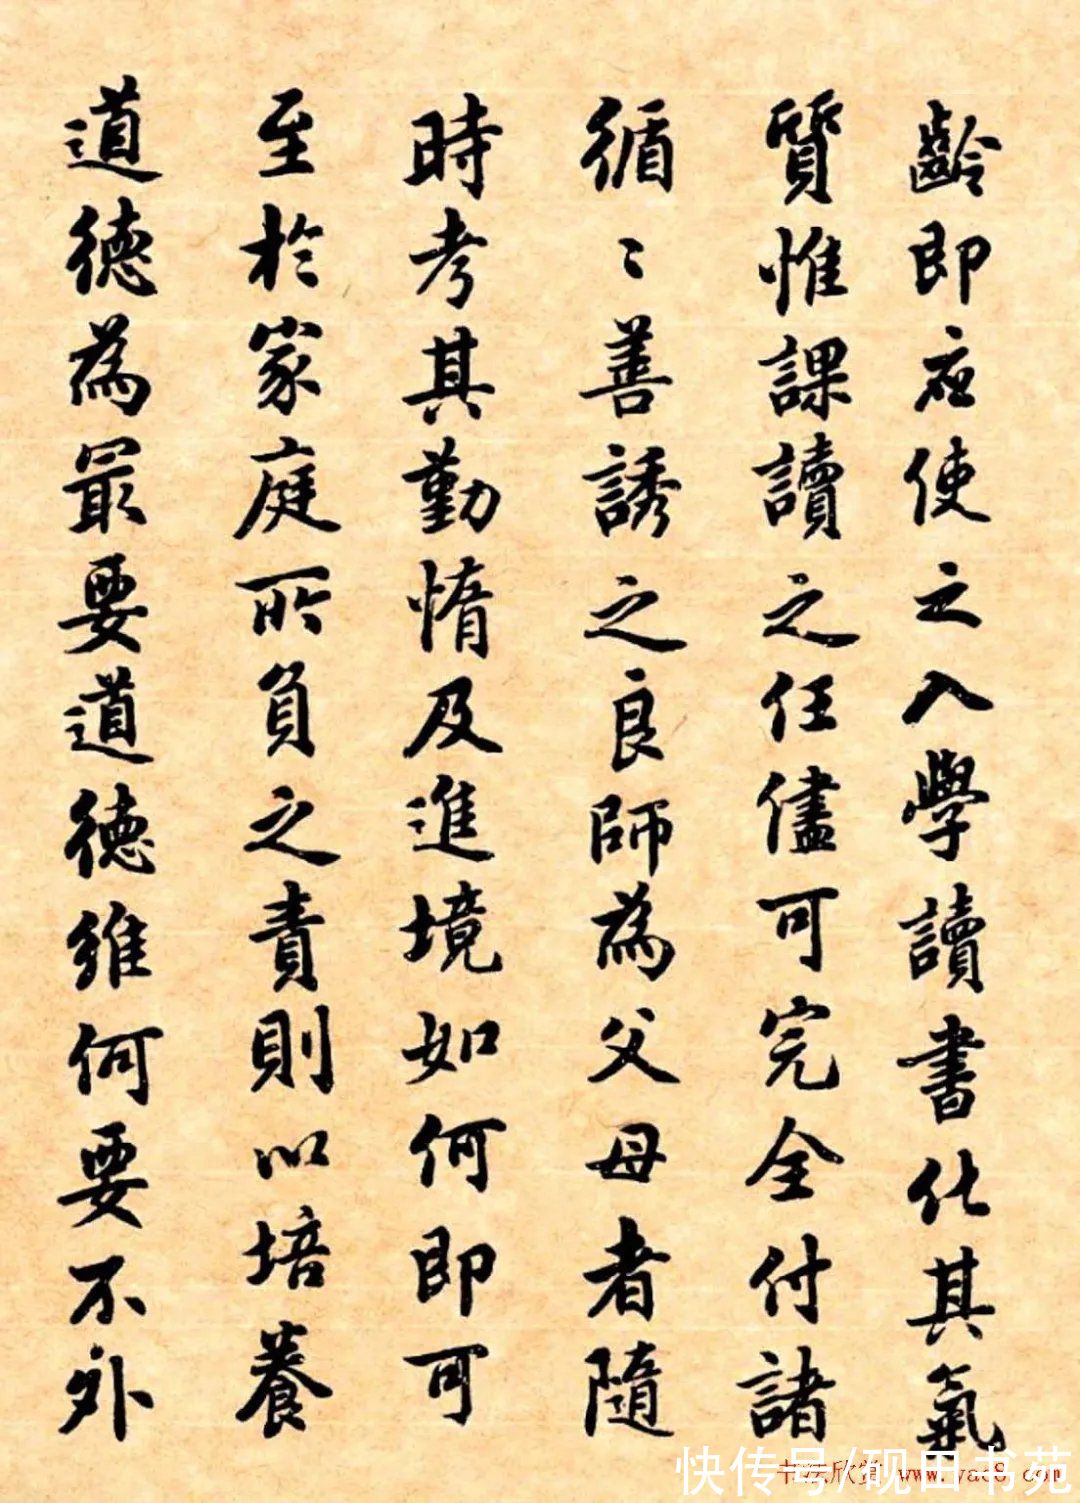 齡即应使之入學讀書化其氣
質惟課讀之任儘可完全付諸
循〻善誘之良師為父母者隨
時考其勤惰及進境如何即可
至於家庭所負之責則以培養
道德為最要道德維何要不外
书法欣赏 www.yac8.com
快传号/砚田书苑